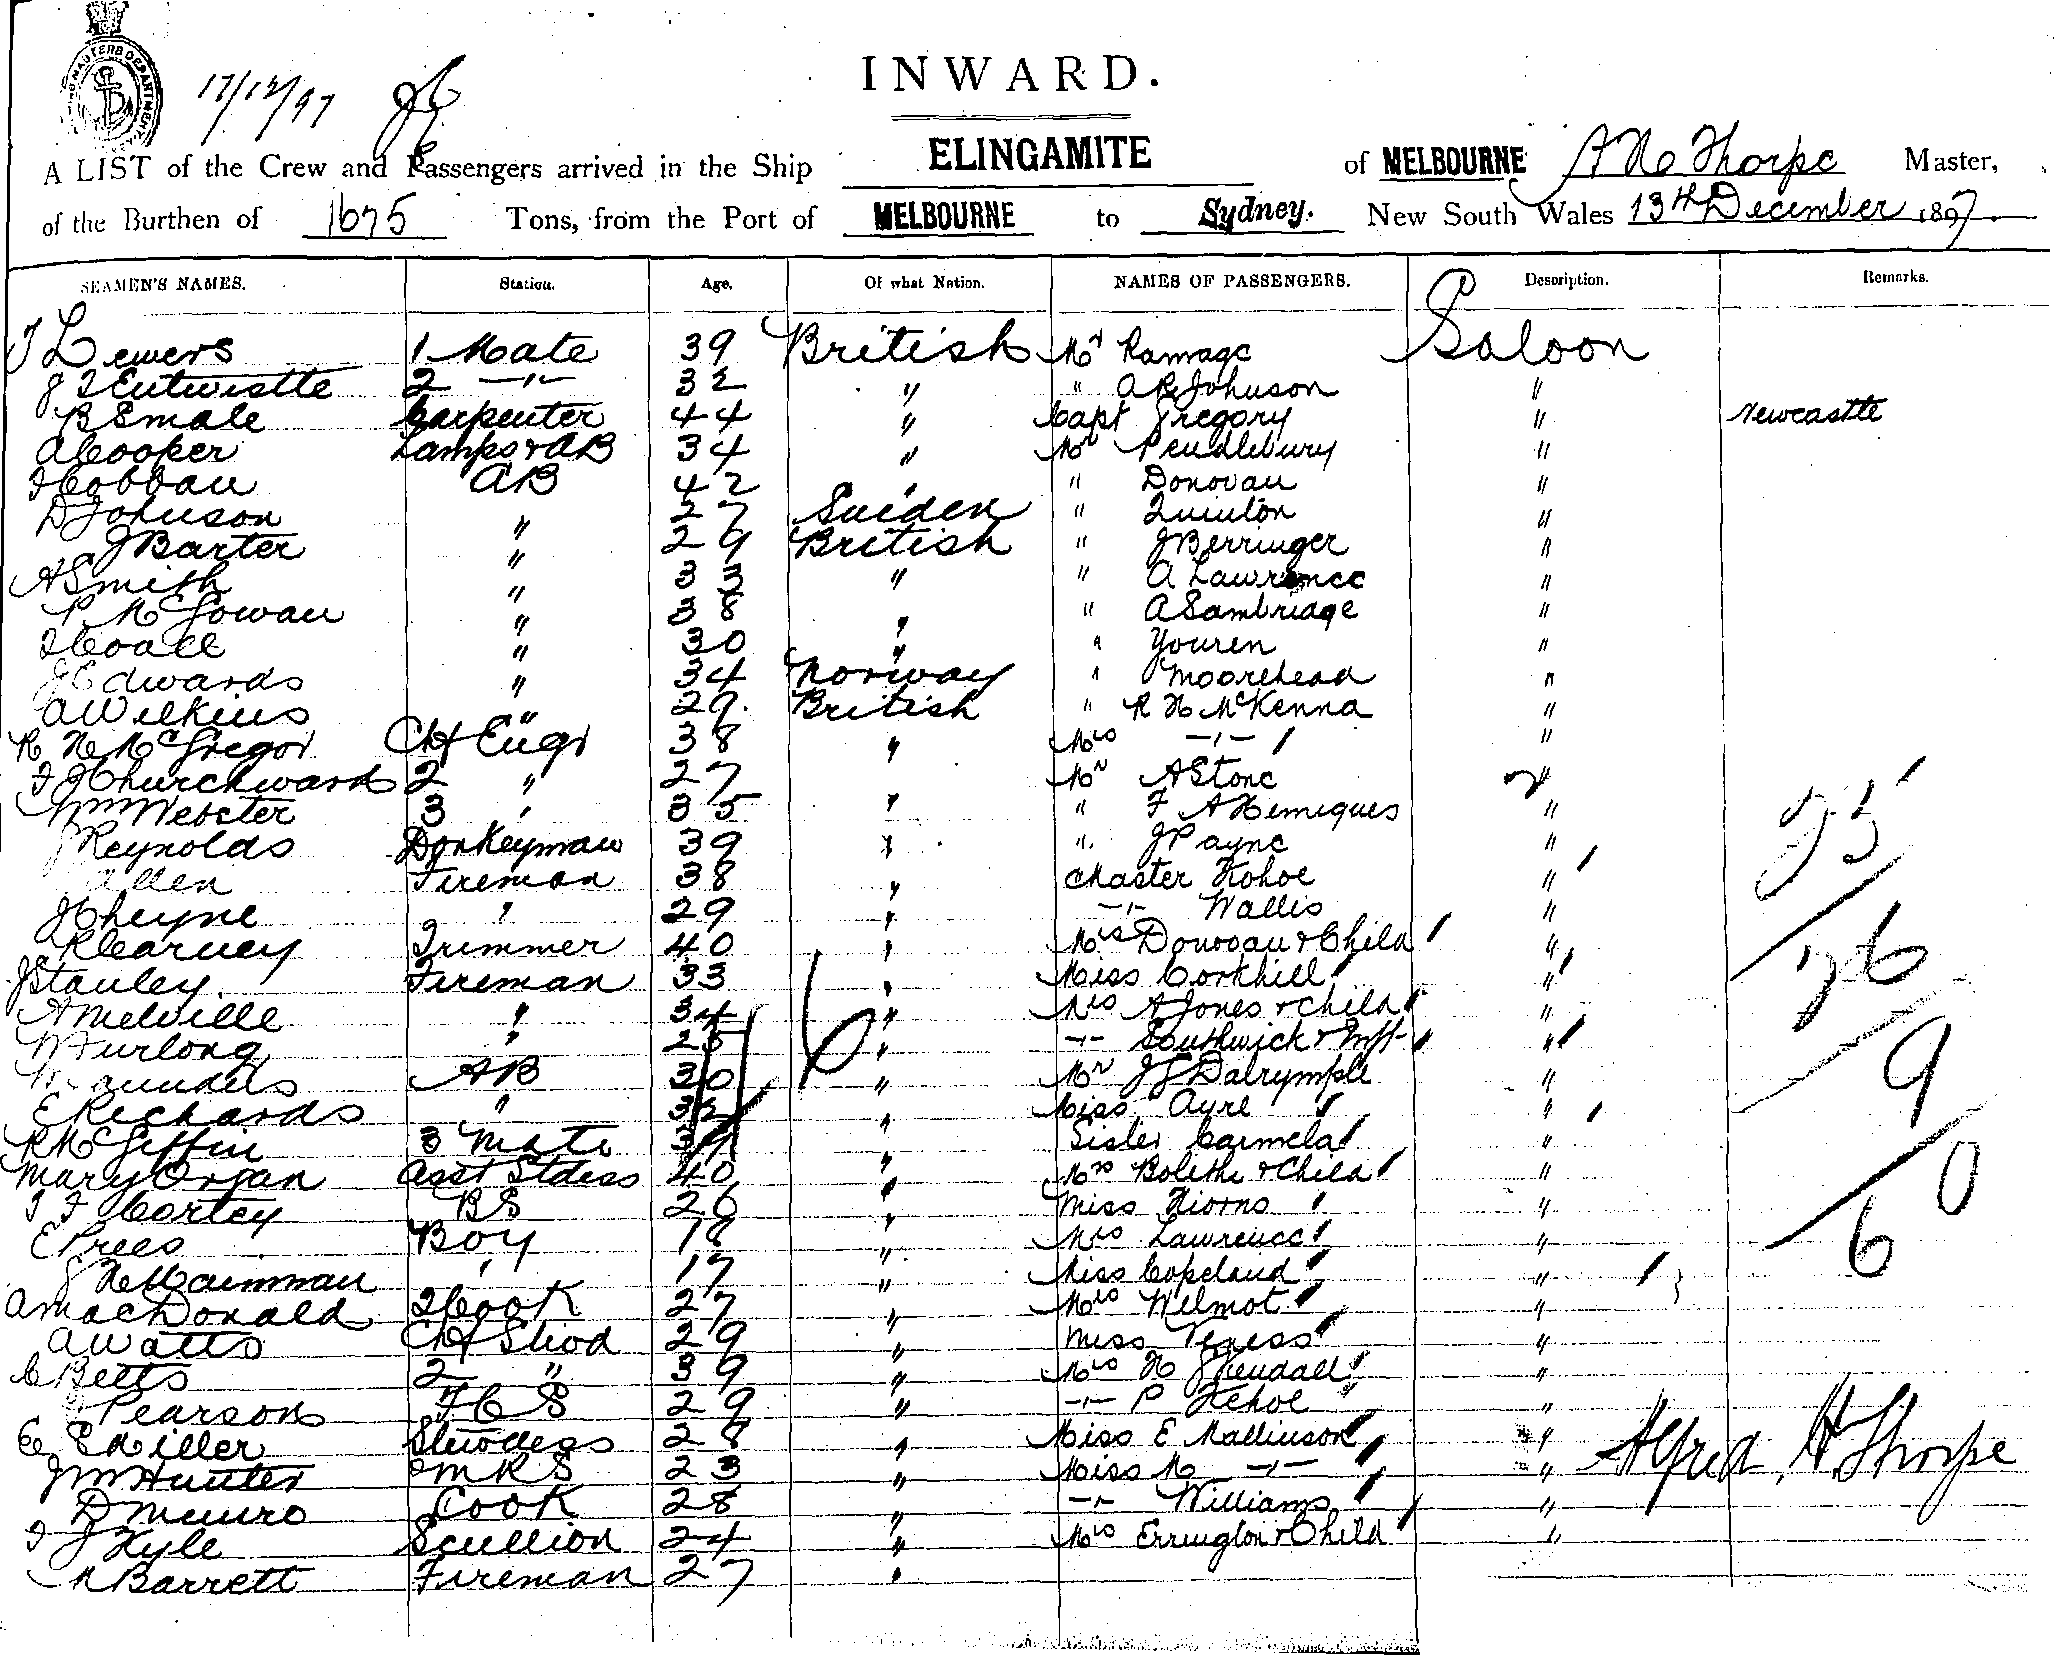 17/12/97
INWARD.
A LIST of the Crew and Passengers arrived in the Ship ELINGAMITE of MELBOURNE A H Thorpe Master,
of the Burthen of 1675 Tons, from the Port of MELBOURNE to Sydney. New South Wales 13th December 1897.
SEAMEN'S NAMES. Station. Age. Of what Nation. NAMES OF PASSENGERS. Description. Remarks.
T Lewers 1 Mate 39 British Mr Ramage Saloon
J T Entwistle 2 -"- 32 " " A R Johnson "
B Smale Carpenter 44 " Capt Gregory " Newcastle
A Cooper Lamps & AB 34 " Mr Pendlebury "
Cobban AB 42 " " Donovan "
D Johnson " 27 Sueden " Quinton "
J Barter " 29 British " J Berringer "
A Smith " 33 " " A Lawrence "
P McGowan " 38 " " A Sambridge "
" 30 " " Youren "
J Edwards " 34 Norway " Moorehead "
A Wilkins " 29. British " R H McKenna "
R H McGregor CH Engr 38 " Mrs -"- "
F J Churchward 2 " 27 Mr A Stone "
Wm Webster 3 " 35 " " F A Hemiques "
J Reynolds Donkeyman 39 " " J Payne "
Allen Fireman 38 " Master Kohoe "
J Cheyne " 29 " -"- Wallis "
R Carney Trimmer 40 " Mrs Donovan & Child "
J Stanley Fireman 33 " Miss Corkhill "
A Melville " 34 " Mrs A Jones & Child "
W Furlong " 25 " -"- Southwick & Inft "
Saunders AB 30 " Mr J J Dalrymple "
E Richards " 32 " Miss Ayre "
R McGiffin 3 Mate " Sister Carmela "
Mary Organ Asst Stdess 40 " Mrs Bolithe & Child "
T F Cortey BS 26 " Miss Hiorns "
E Prees Boy 18 " Mrs Lawrence "
" 17 " Miss Copeland "
A MacDonald 2 Cook 27 " Mrs Wilmot "
A Watts CH Stwd 29 " Miss "
C Betts 2 " 39 " Mrs H J Kendall "
Pearson F C S 29 " -"- P Kehoe "
E Miller Stwdess 28 " Miss E Mallinson "
J M Hunter 23 " Miss M -"- "
D Munro Cook 28 " -"- Williams "
T J Kyle Scullion 24 " Mrs Errington & Child "
M Barrett Fireman 27 "
75
76
9
0
6
Alfred H Thorpe